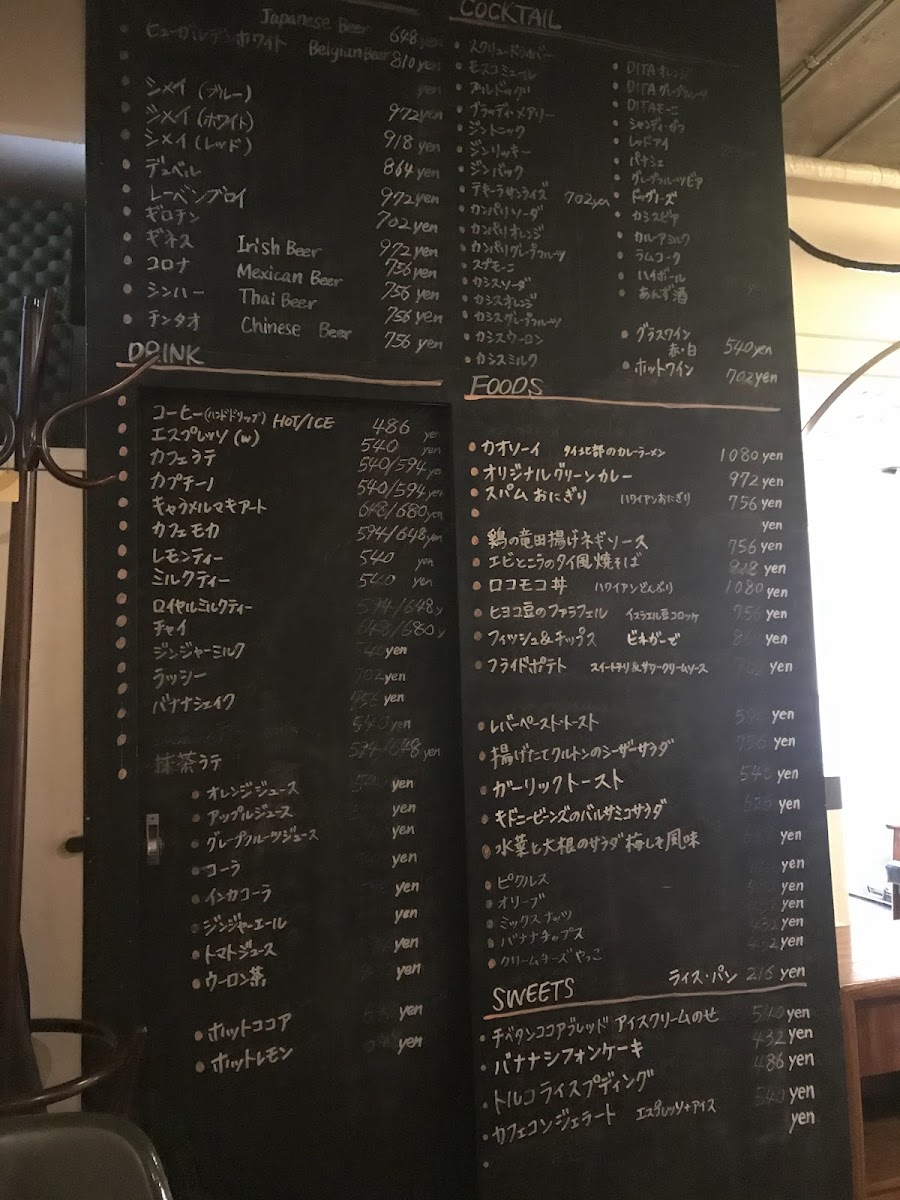 Japanese Beer 648 yen
ヒューガルデンホワイト Belgian Beer 810 yen
yen
シメイ (ブルー) 972 yen
シメイ (ホワイト) 918 yen
シメイ (レッド) 864 yen
デュベル 972 yen
レーベンブロイ 702 yen
ギロチン 972 yen
ギネス Irish Beer 756 yen
コロナ Mexican Beer 756 yen
シンハー Thai Beer 756 yen
チンタオ Chinese Beer 756 yen
COCKTAIL
スクリュードライバー
モスコミュール
ブルドック
ブラッディ・メアリー
ジントニック
ジンリッキー
ジンバック
テキーラサンライズ 702 yen
カンパリソーダ
カンパリオレンジ
カンパリグレープフルーツ
スプモーニ
カシスソーダ
カシスオレンジ
カシスグレープフルーツ
カシスウーロン
カシスミルク
DITAオレンジ
DITAグレープフルーツ
DITAモーニ
シャンディ・ガフ
レッドアイ
パナシェ
グレープフルーツビア
ドッグノーズ
カシスビア
カルーアミルク
ラムコーク
ハイボール
あんず酒
グラスワイン
赤・白 540 yen
ホットワイン 702 yen
DRINK
コーヒー(ハンドドリップ) HOT/ICE 486 yen
エスプレッソ (W) 540 yen
カフェラテ 540/594 yen
カプチーノ 540/594 yen
キャラメルマキアート 648/680 yen
カフェモカ 594/648 yen
レモンティー 540 yen
ミルクティー 540 yen
ロイヤルミルクティー 594/648 y
チャイ 648/680 y
ジンジャーミルク 540 yen
ラッシー 702 yen
バナナシェイク 756 yen
540 yen
抹茶ラテ 594/648 yen
オレンジジュース yen
アップルジュース yen
グレープフルーツジュース yen
コーラ yen
インカコーラ yen
ジンジャーエール yen
トマトジュース yen
ウーロン茶 yen
ホットココア yen
ホットレモン yen
FOODS
カオソーイ タイ北部のカレーラーメン 1080 yen
オリジナルグリーンカレー 972 yen
スパムおにぎり ハワイアンおにぎり 756 yen
yen
鶏の竜田揚げネギソース 756 yen
エビとニラのタイ風焼そば 918 yen
ロコモコ丼 ハワイアンどんぶり 1080 yen
ヒヨコ豆のファラフェル イスラエル豆コロッケ 756 yen
フィッシュ&チップス ビネガーで yen
フライドポテト スイートチリ&サワークリームソース 702 yen
レバーペースト・トースト yen
揚げたてクルトンのシーザーサラダ 756 yen
ガーリックトースト 540 yen
キドニービーンズのバルサミコサラダ yen
水菜と大根のサラダ梅しそ風味 yen
yen
ピクルス yen
オリーブ yen
ミックスナッツ 432 yen
バナナチップス 432 yen
クリームチーズやっこ
ライス・パン 216 yen
SWEETS
チベタンココアブレッド アイスクリームのせ 540 yen
バナナシフォンケーキ 432 yen
トルコライスプディング 486 yen
カフェコンジェラート エスプレッソ+アイス 540 yen
yen